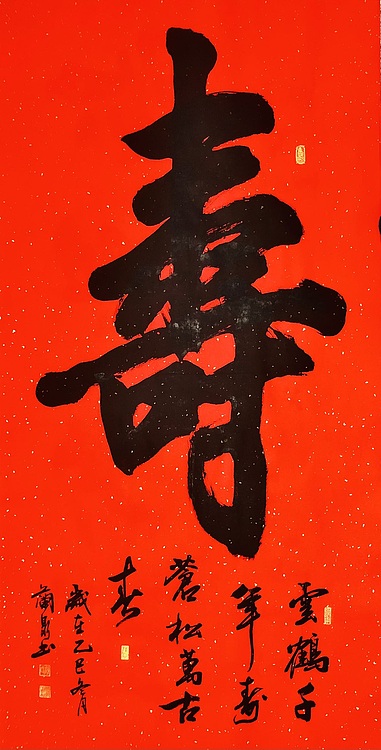 壽
雲鶴千
年壽
蒼松萬古
春
歲在乙巳冬月